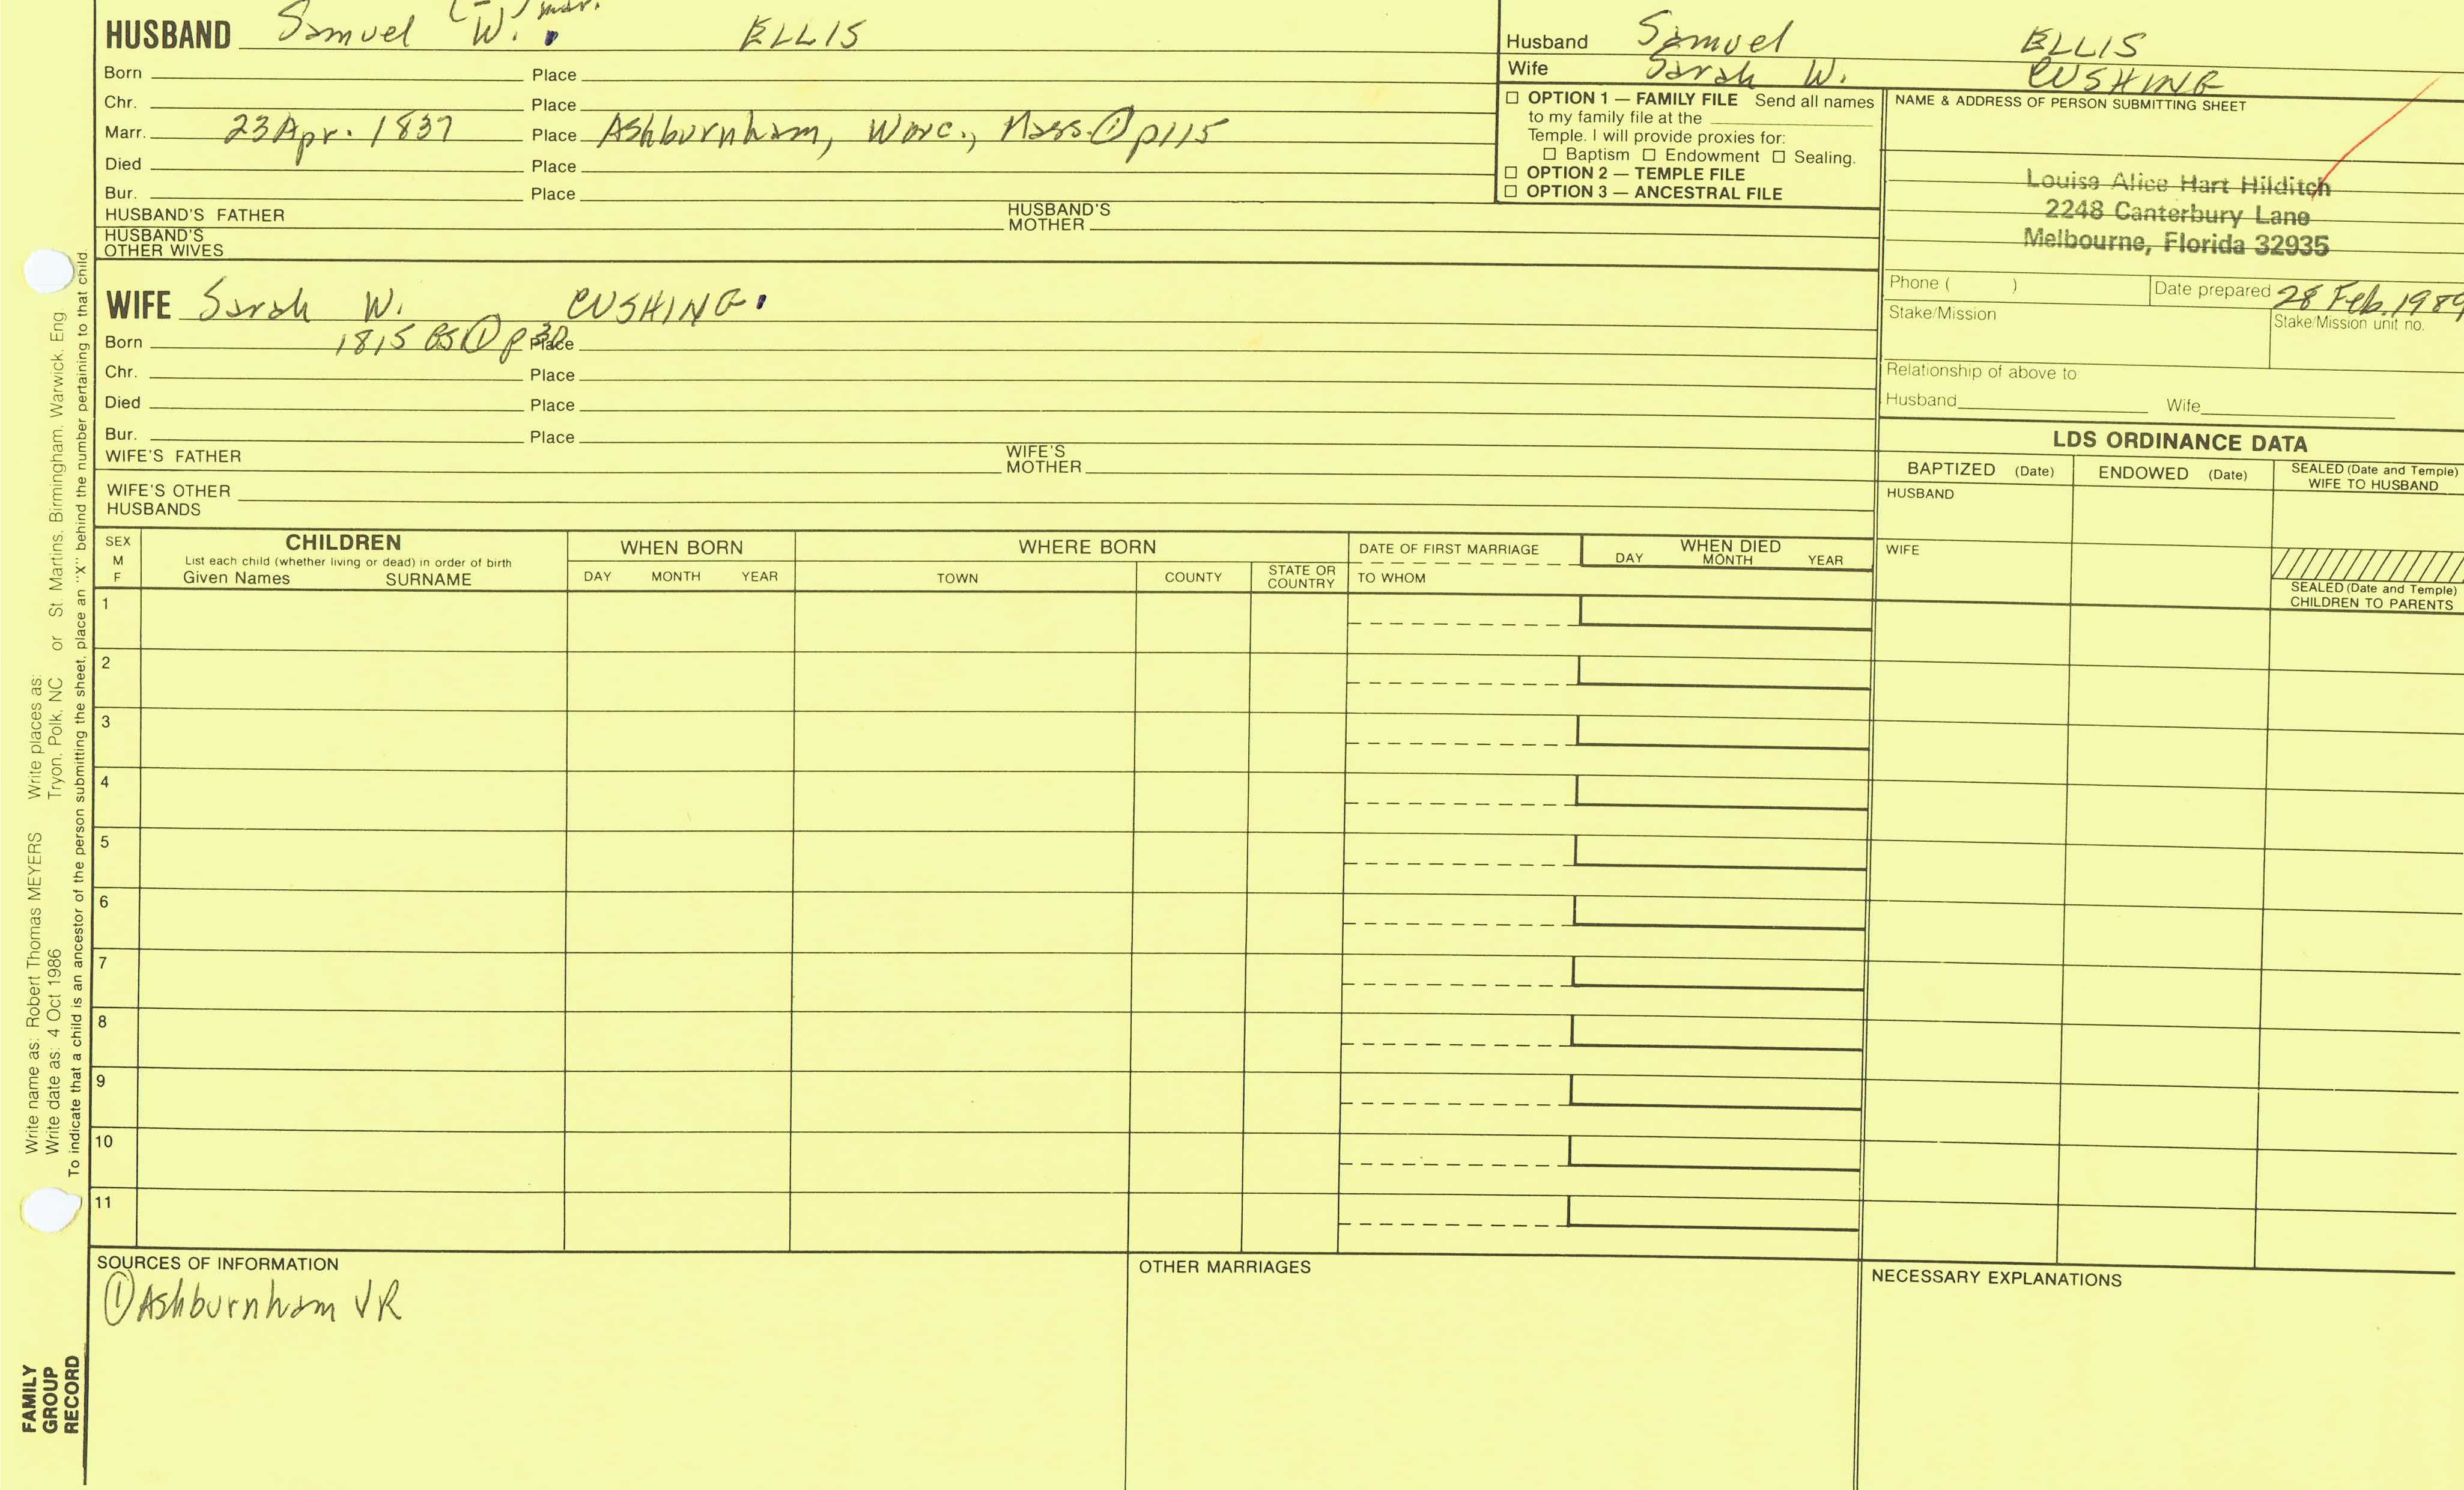 HUSBAND Samuel W. ELLIS
Born Place
Chr. Place
Marr. 23 Apr. 1837 Place Ashburnham, Worc., Mass. ① p115
Died Place
Bur. Place
HUSBAND'S FATHER HUSBAND'S MOTHER
HUSBAND'S OTHER WIVES
WIFE Sarah W. CUSHING
Born 1815 ① p 30 Place
Chr. Place
Died Place
Bur. Place
WIFE'S FATHER WIFE'S MOTHER
WIFE'S OTHER HUSBANDS
Husband Samuel ELLIS
Wife Sarah W. CUSHING
☐ OPTION 1 — FAMILY FILE Send all names
to my family file at the
Temple. I will provide proxies for:
☐ Baptism ☐ Endowment ☐ Sealing.
☐ OPTION 2 — TEMPLE FILE
☐ OPTION 3 — ANCESTRAL FILE
NAME & ADDRESS OF PERSON SUBMITTING SHEET
Louise Alice Hart Hilditch
2248 Canterbury Lane
Melbourne, Florida 32935
Phone ( ) Date prepared 28 Feb. 1989
Stake/Mission Stake/Mission unit no.
Relationship of above to
Husband Wife
LDS ORDINANCE DATA
BAPTIZED (Date) ENDOWED (Date) SEALED (Date and Temple) WIFE TO HUSBAND
HUSBAND
WIFE
SEALED (Date and Temple)
CHILDREN TO PARENTS
SEX M F
CHILDREN
List each child (whether living or dead) in order of birth
Given Names SURNAME
WHEN BORN
DAY MONTH YEAR
WHERE BORN
TOWN COUNTY STATE OR COUNTRY
DATE OF FIRST MARRIAGE
TO WHOM
WHEN DIED
DAY MONTH YEAR
1
2
3
4
5
6
7
8
9
10
11
SOURCES OF INFORMATION
① Ashburnham VR
OTHER MARRIAGES
NECESSARY EXPLANATIONS
Write name as: Robert Thomas MEYERS Write places as:
Write date as: 4 Oct 1986 Tryon, Polk, NC or St. Martins, Birmingham, Warwick, Eng
To indicate that a child is an ancestor of the person submitting the sheet, place an "X" behind the number pertaining to that child
FAMILY
GROUP
RECORD